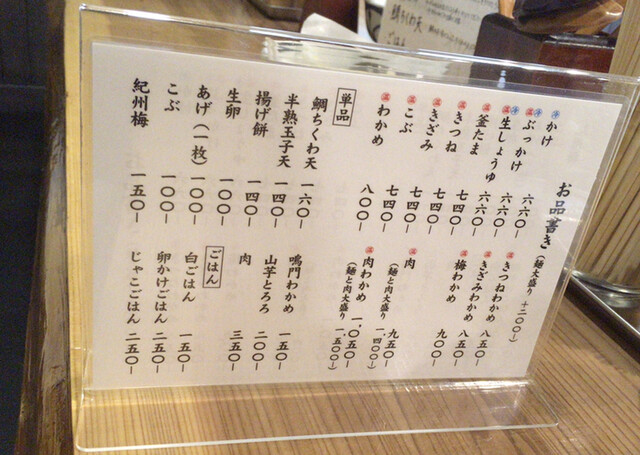 お品書き(麺大盛り +二〇〇-)
冷 かけ 六六〇-
温 冷 ぶっかけ 六六〇-
温 冷 生しょうゆ 六六〇-
温 釜たま 七四〇-
温 きつね 七四〇-
温 きざみ 七四〇-
温 こぶ 七四〇-
温 わかめ 八〇〇-
温 きつねわかめ 八五〇-
温 きざみわかめ 八五〇-
温 梅わかめ 九〇〇-
温 肉 九五〇-
(麺と肉大盛り 一,四〇〇-)
温 肉わかめ 一,〇五〇-
(麺と肉大盛り 一,五〇〇-)
単品
鯛ちくわ天 一六〇-
半熟玉子天 一四〇-
揚げ餅 一四〇-
生卵 一〇〇-
あげ(一枚) 一〇〇-
こぶ 一〇〇-
紀州梅 一五〇-
鳴門わかめ 一五〇-
山芋とろろ 二〇〇-
肉 三五〇-
ごはん
白ごはん 一五〇-
卵かけごはん 二五〇-
じゃこごはん 二五〇-
鯛ちくわ天
ごはん